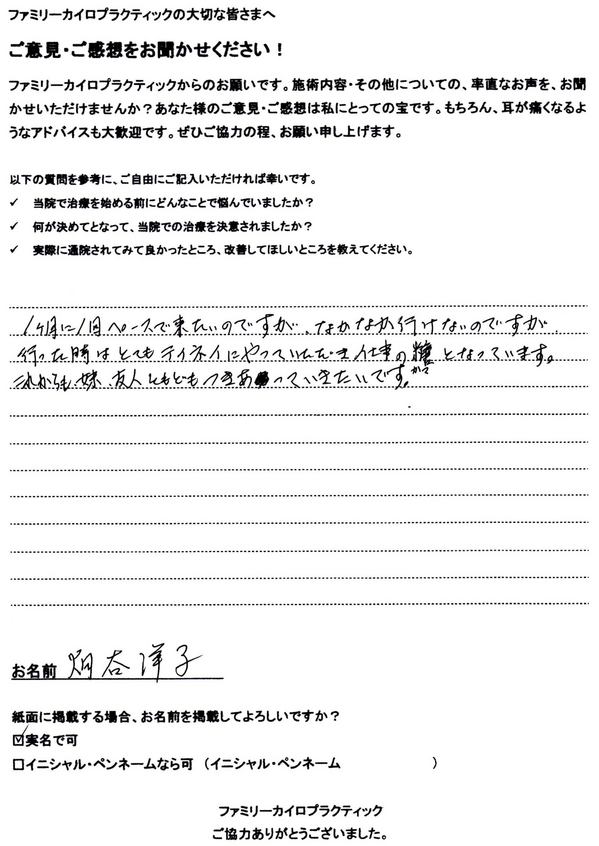 ファミリーカイロプラクティックの大切な皆さまへ
ご意見・ご感想をお聞かせください！
ファミリーカイロプラクティックからのお願いです。施術内容・その他についての、率直なお声を、お聞
かせいただけませんか？あなた様のご意見・ご感想は私にとっての宝です。もちろん、耳が痛くなるよ
うなアドバイスも大歓迎です。ぜひご協力の程、お願い申し上げます。
以下の質問を参考に、ご自由にご記入いただければ幸いです。
✓ 当院で治療を始める前にどんなことで悩んでいましたか？
✓ 何が決めてとなって、当院での治療を決意されましたか？
✓ 実際に通院されてみて良かったところ、改善してほしいところを教えてください。
1ヶ月に1回ペースで来たいのですが、なかなか行けないのですが、
行った時はとてもテイネイにやっていただき仕事の糧となっています。
かて
これからも妹、友人ともどもつきあっていきたいです。
お名前 畑谷洋子
紙面に掲載する場合、お名前を掲載してよろしいですか？
☑実名で可
□イニシャル・ペンネームなら可 （イニシャル・ペンネーム ）
ファミリーカイロプラクティック
ご協力ありがとうございました。